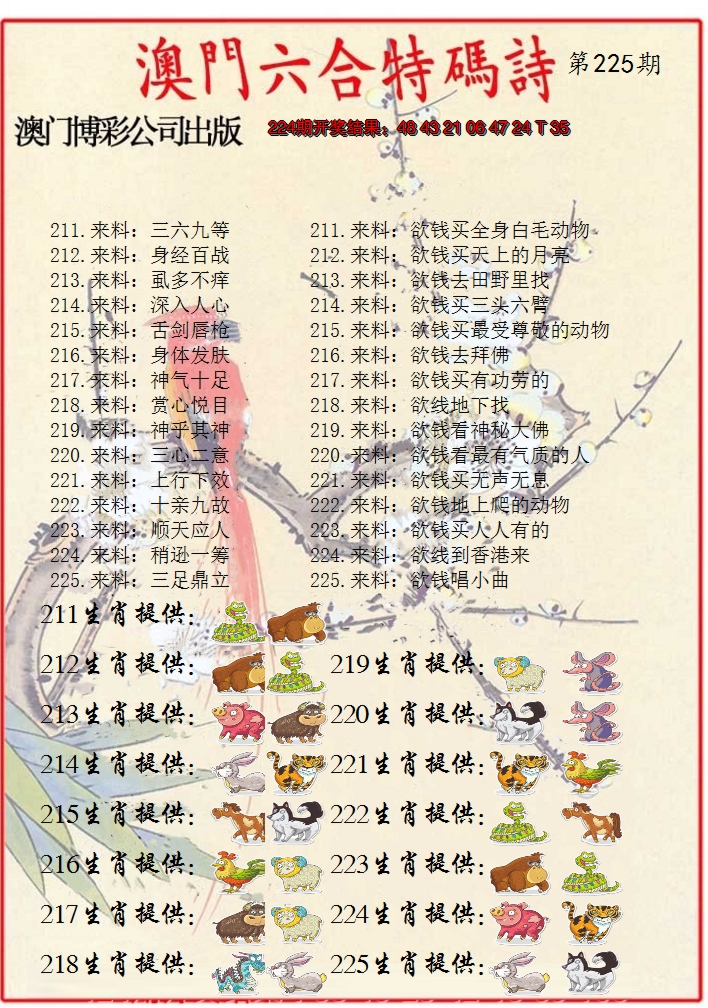 澳門六合特碼詩 第225期
澳门博彩公司出版 224期开奖结果：48 43 21 06 47 24 T 35
211.来料：三六九等 211.来料：欲钱买全身白毛动物
212.来料：身经百战 212.来料：欲钱买天上的月亮
213.来料：虱多不痒 213.来料：欲钱去田野里找
214.来料：深入人心 214.来料：欲钱买三头六臂
215.来料：舌剑唇枪 215.来料：欲钱买最受尊敬的动物
216.来料：身体发肤 216.来料：欲钱去拜佛
217.来料：神气十足 217.来料：欲钱买有功劳的
218.来料：赏心悦目 218.来料：欲线地下找
219.来料：神乎其神 219.来料：欲钱看神秘大佛
220.来料：三心二意 220.来料：欲钱看最有气质的人
221.来料：上行下效 221.来料：欲钱买无声无息
222.来料：十亲九故 222.来料：欲钱地上爬的动物
223.来料：顺天应人 223.来料：欲钱买人人有的
224.来料：稍逊一筹 224.来料：欲线到香港来
225.来料：三足鼎立 225.来料：欲钱唱小曲
211生肖提供：
212生肖提供： 219生肖提供：
213生肖提供： 220生肖提供：
214生肖提供： 221生肖提供：
215生肖提供： 222生肖提供：
216生肖提供： 223生肖提供：
217生肖提供： 224生肖提供：
218生肖提供： 225生肖提供：